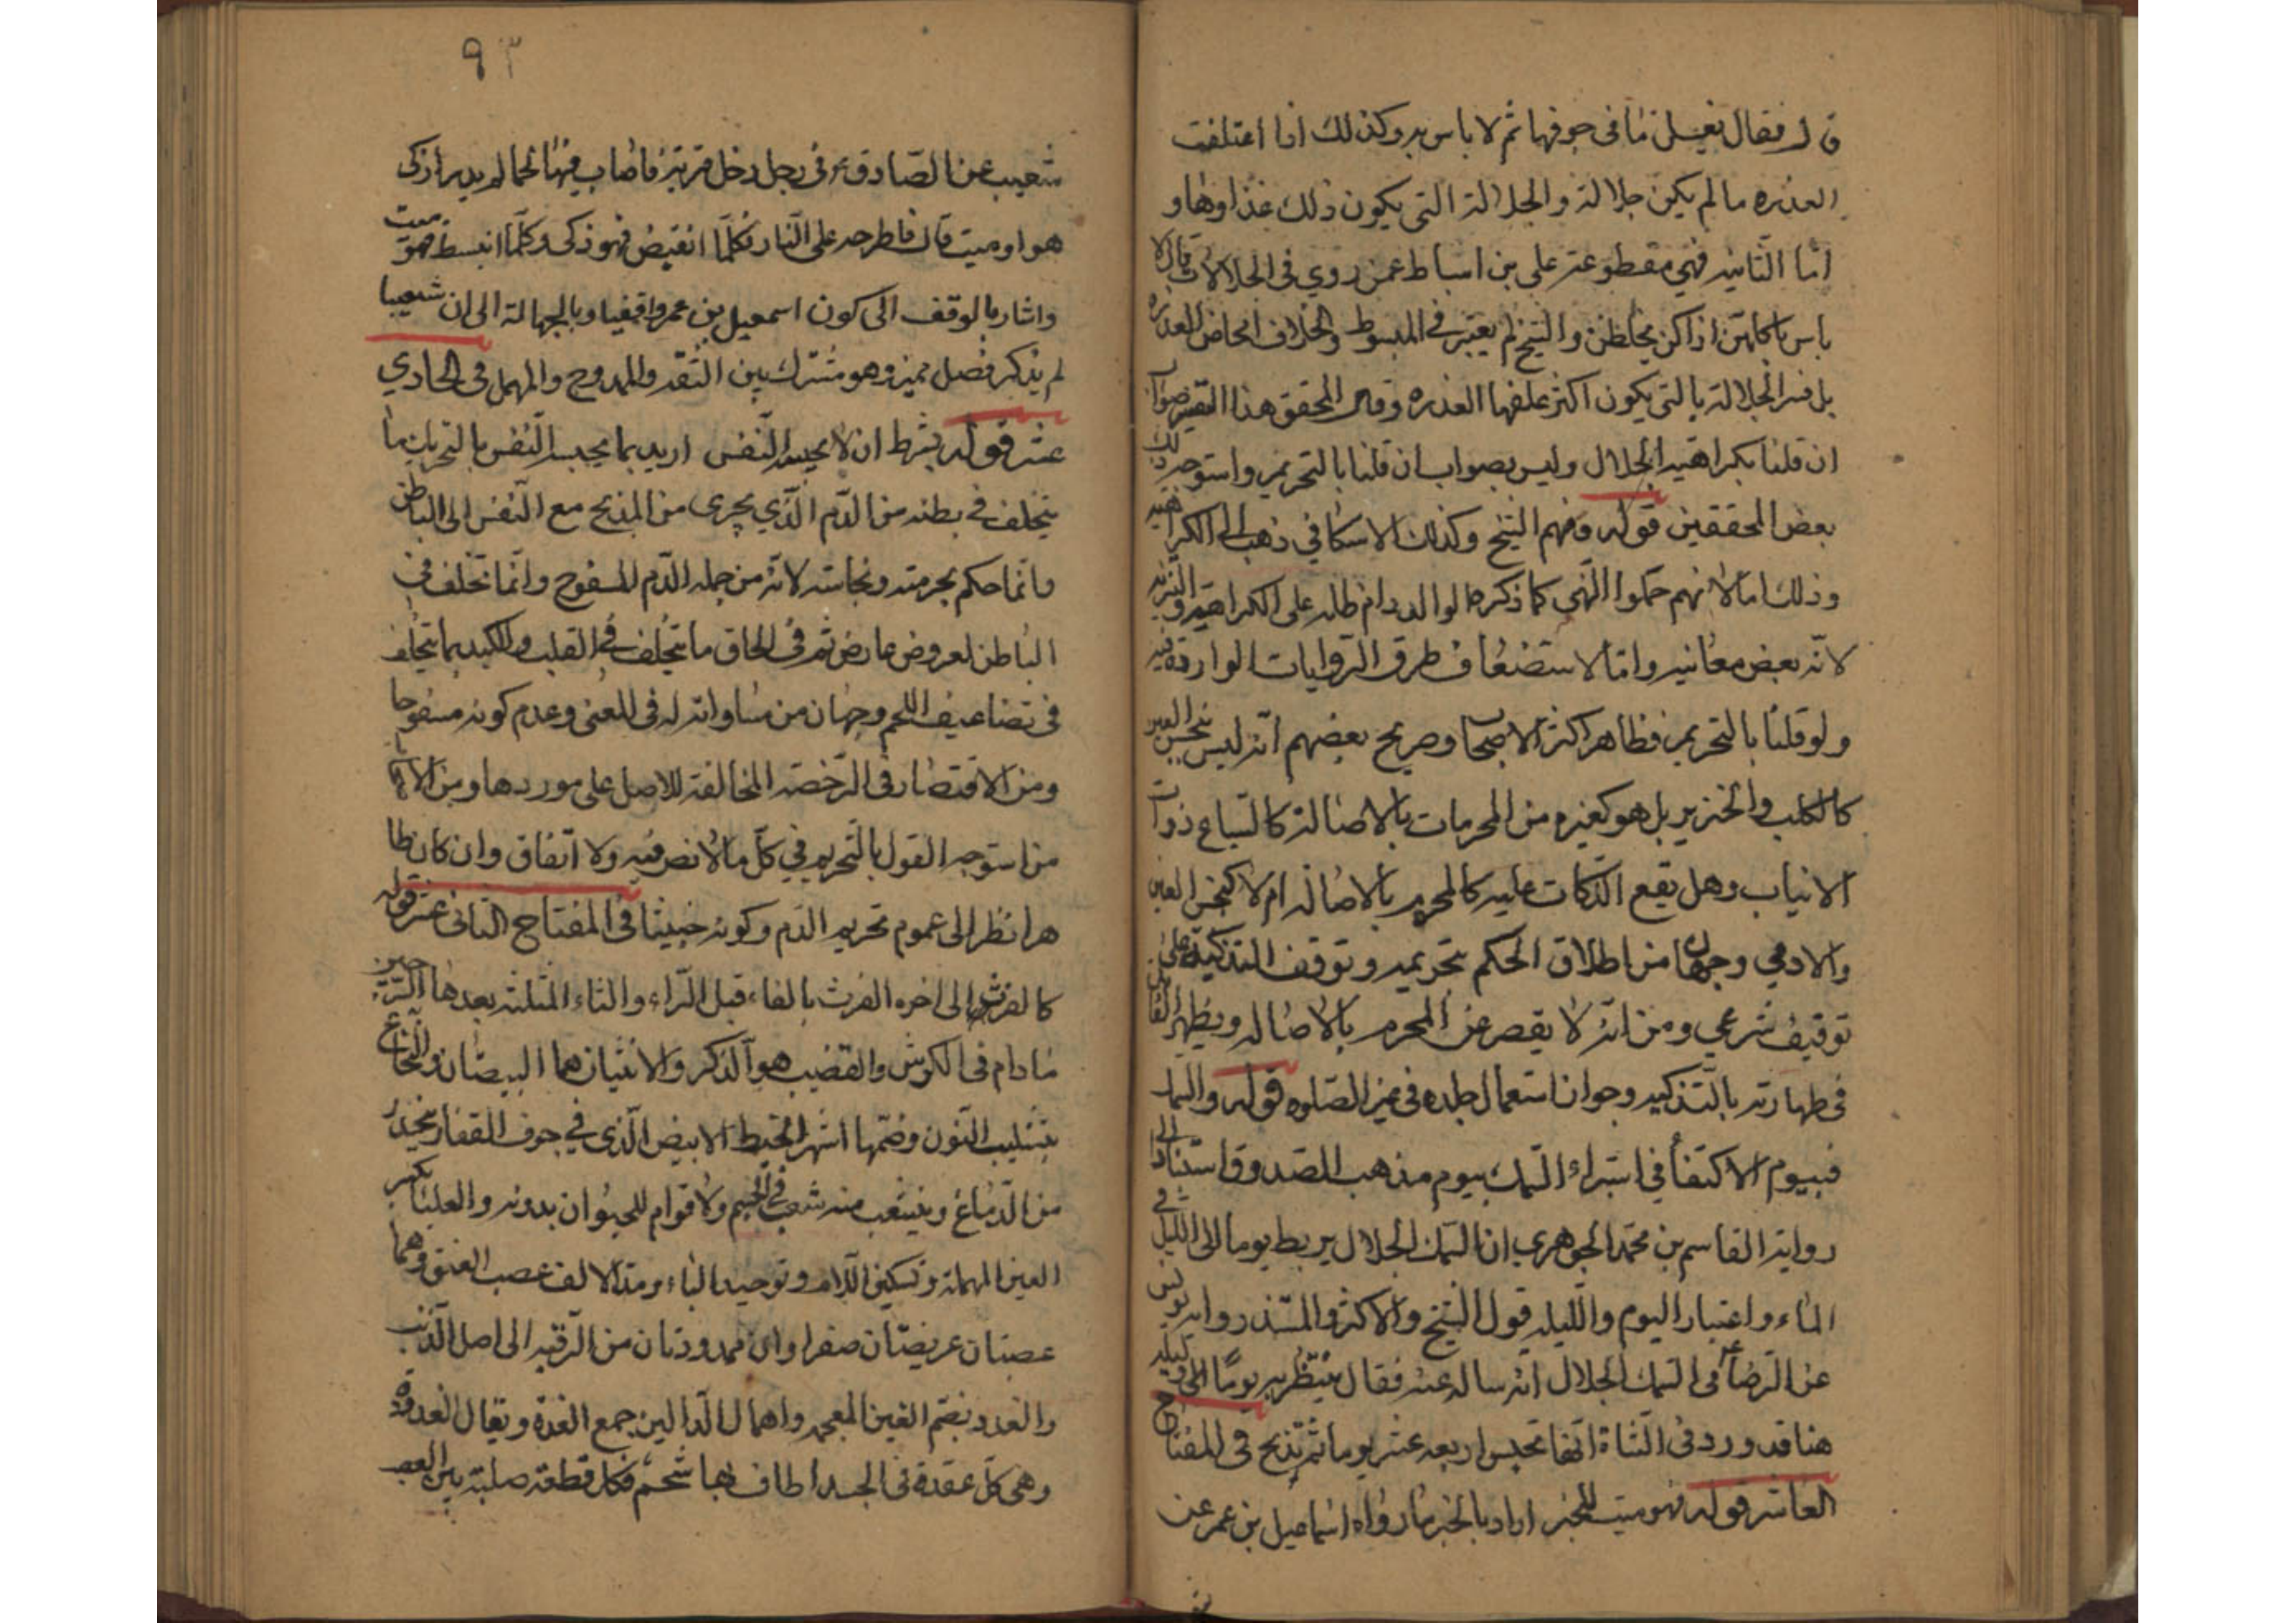 فقال يغسل ما في جوفها ثم لا باس به وكذلك اذا اعتلفت
العذره ما لم يكن جلالة والجلالة التي يكون ذلك غذاوها و
اما الثانيه فهي مقطوعة علي بن اسباط عمن روي في الجلالات قال لا
باس باكلهن اذا كن يخلطن والشيخ لم يعتبر في المبسوط والخلاف امحاض العذره
بل فسر الجلالة بالتي يكون اكثر علفها العذره وقال المحقق هذا التفسير صواب
ان قلنا بكراهية الجلال وليس بصواب ان قلنا بالتحريم واستوجه ذلك
بعض المحققين قوله ومنهم الشيخ وكذلك الاسكافي ذهب الى الكراهية
وذلك اما لانهم حملوا النهي كما ذكره الوالد دام ظله على الكراهية والتنزيه
لانه بعض معانيه واما لاستضعاف طرق الروايات الوارده فيه
ولو قلنا بالتحريم فظاهر اكثر الاصحاب وصريح بعضهم انه ليس بنجس العين
كالكلب والخنزير بل هو كغيره من المحرمات بالاصالة كالسباع ذوات
الانياب وهل يقع الذكات عليه كالمحرم بالاصاله ام لا كنجس العين
والادمي وجهان من اطلاق الحكم بتحريمه وتوقف التذكية على
توقيف شرعي ومن انه لا يقصر عن المحرم بالاصاله ويظهر الفائدة
في طهارته بالتذكيه وجواز استعمال جلده في غير الصلوه قوله والسمك
فبيوم الاكتفاء في استبراء السمك بيوم مذهب الصدوق استنادا الى
رواية القاسم بن محمد الجوهري ان السمك الجلال يربط يوما الى الليل في
الماء واعتبار اليوم والليله قول الشيخ والاكثر والمستند رواية يونس
عن الرضا ع في السمك الجلال انه ساله عنه فقال ينتظر به يوما وليلة قوله
هنا قد ورد في الشاة انها تحبس اربعه عشر يوما ثم تذبح في المفتاح
العاشر قوله فهو ميت للخبر اراد بالخبر ما رواه اسماعيل بن عمر عن
٩٣
شعيب عن الصادق ع في رجل دخل قرية فاصاب فيها لحما لم يدر اذكي
هو او ميت قال فاطرحه على النار فكلما انقبض فهو ذكي وكلما انبسط فهو ميت
واشار بالوقف الى كون اسمعيل بن عمر واقفيا وبالجهالة الى ان شعيبا
لم يذكر فصل مميز وهو مشترك بين الثقة والممدوح والمهمل في الحادي
عشر قوله بشرط ان لا يجبسه النفس اريد بما يجبسه النفس بالتحريك ما
يتخلف في بطنه من الدم الذي يجري من المذبح مع النفس الى الباطن
وانما حكم بحرمته ونجاسته لانه من جمله الدم المسفوح وانما تخلف في
الباطن لعروض عارض ثم في الحاق ما يتخلف في القلب والكبد بما يتخلف
في تضاعيف اللحم وجهان من مساواته له في المعنى وعدم كونه مسفوحا
ومن الاقتصار في الرخصة المخالفة للاصل على موردها ومن الاصحاب
من استوجه القول بالتحريم في كل ما لا نص فيه ولا اتفاق وان كان طا
هرا نظرا الى عموم تحريم الدم وكونه خبيثا في المفتاح الثاني عشر قوله
كالفرث الى اخره الفرث بالفاء قبل الراء والثاء المثلثه بعدها السرجين
ما دام في الكرش والقضيب هو الذكر والانثيان هما البيضتان والنخاع
بتثليث النون وضمها اشهر الخيط الابيض الذي في جوف الفقار ينحدر
من الدماغ ويتشعب منه شعب في الجسم ولا قوام للحيوان بدونه والعلباء بكسر
العين المهملة وتسكين اللام وتوحيد الباء ومد الالف عصب العنق وهما
عصبتان عريضتان صفراوان ممدودتان من الرقبه الى اصل الذنب
والغدد بضم الغين المعجمه واهمال الدالين جمع الغدة ويقال الغددة
وهي كل عقدة في الجسد اطاف بها شحم وكل قطعة صلبة بين العصب